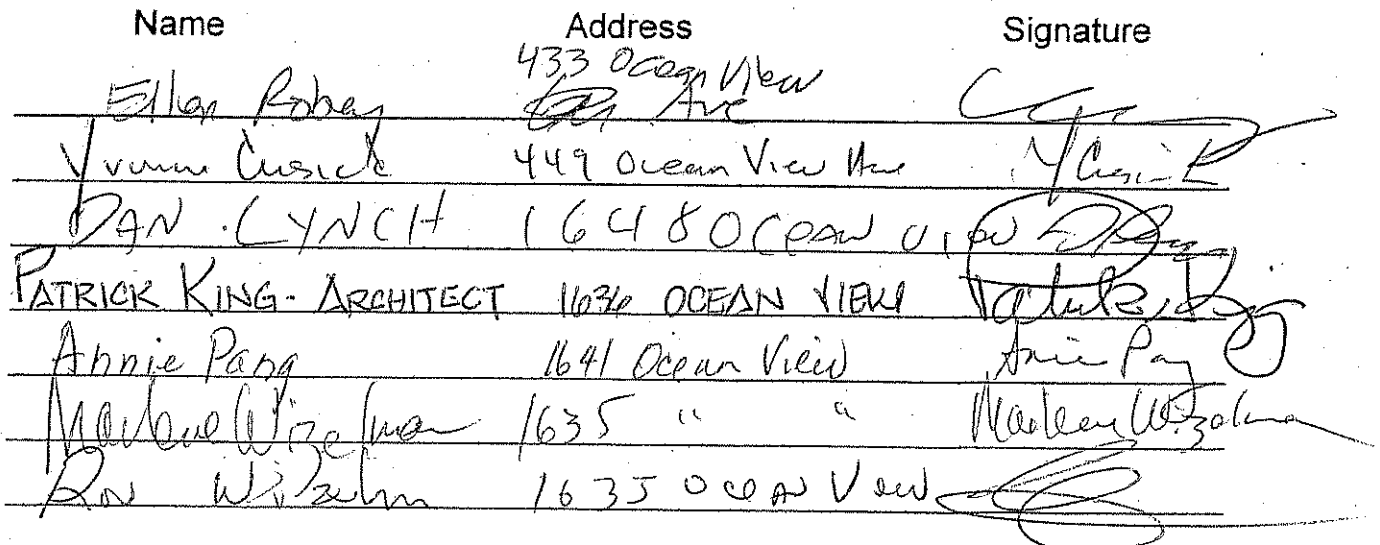 Name Address Signature
433 Ocean View
Ellen Robey Ave
Yvonne Cusick 449 Ocean View Ave Y Cusick
DAN LYNCH 1648 OCEAN VIEW
PATRICK KING - ARCHITECT 1636 OCEAN VIEW Patrick King
Annie Pang 1641 Ocean View Annie Pang
Marlene Wizelman 1635 " " Marlene Wizelman
Ron Wizelman 1635 OCEAN View